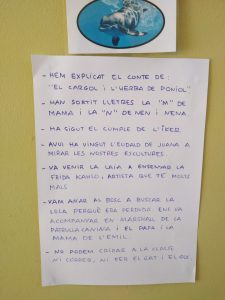 - HEM EXPLICAT EL CONTE DE:
"EL CARGOL I L'HERBA DE PONIOL"
- HAN SORTIT LLETRES LA "M" DE
MAMA I LA "N" DE NEN I NENA
- HA SIGUT EL CUMPLE DE L'IKER
- AVUI HA VINGUT L'EUDALD DE JUANA A
MIRAR LES NOSTRES ESCULTURES.
- VA VENIR LA LAIA A ENSENYAR LA
FRIDA KAHLO, ARTISTA QUE TÉ MOLTS
MALS
- VAM ANAR AL BOSC A BUSCAR LA
LOLA PERQUÈ ERA PERDUDA. ENS VA
ACOMPANYAR EN MARSHALL DE LA
PATRULLA CANINA I EL PAPA I LA
MAMA DE L'EMIL.
- NO PODEM CRIDAR A LA CLASSE,
NI CORRER, NI FER EL GAT I EL GOS